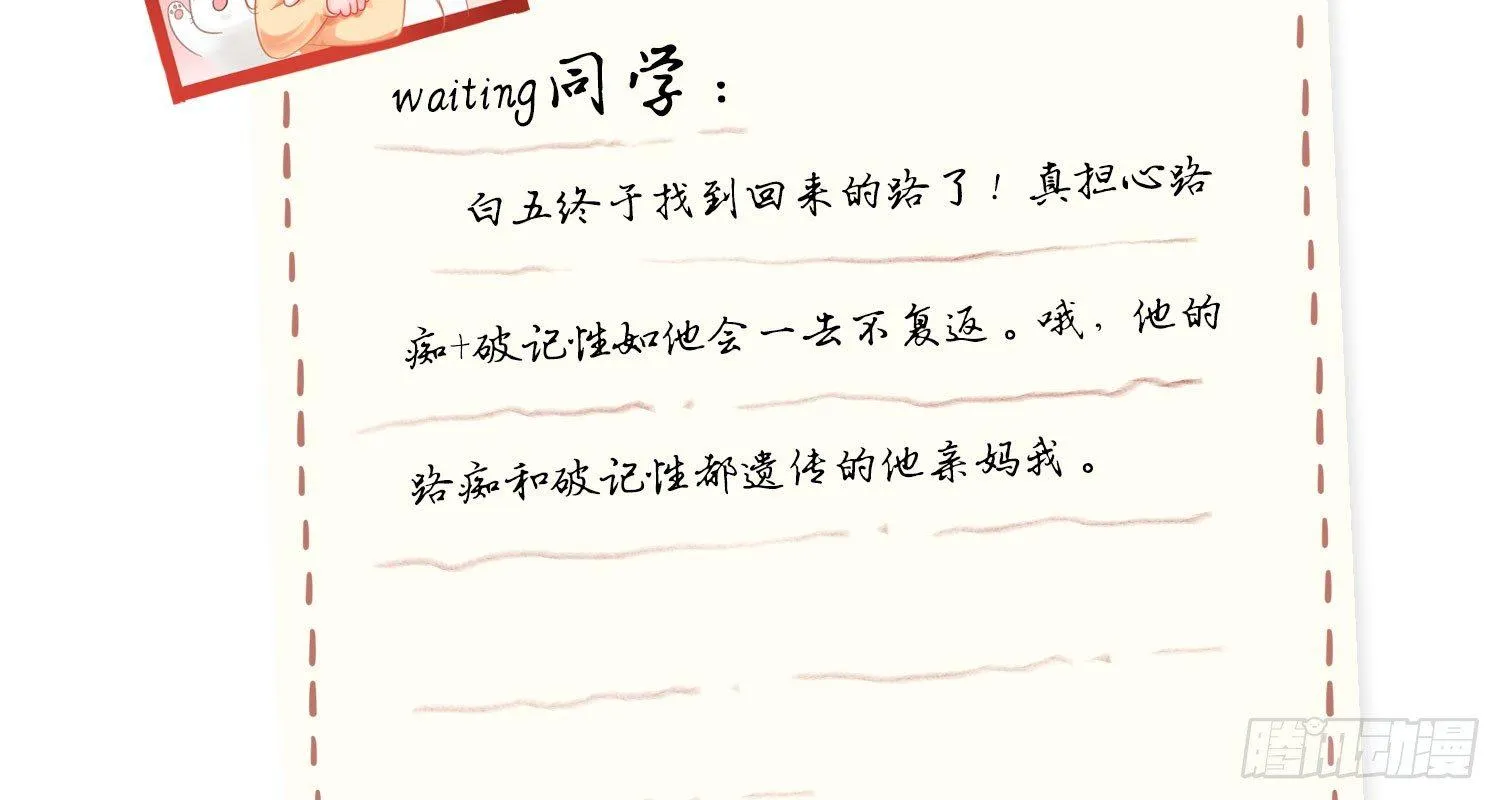 waiting同学：
白五终于找到回来的路了！真担心路
痴+破记性如他会一去不复返。哦，他的
路痴和破记性都遗传的他亲妈我。
腾讯动漫